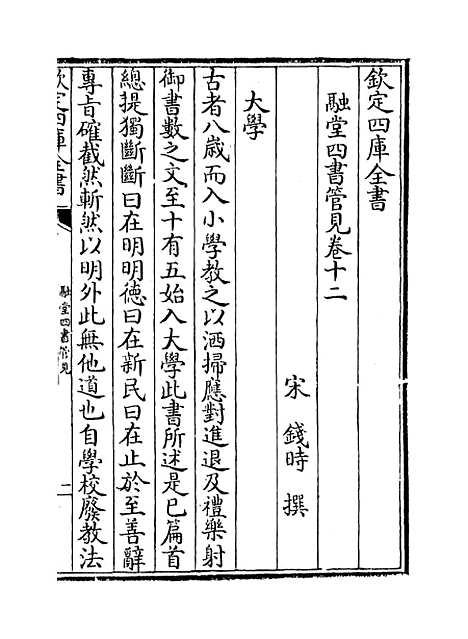 欽定四庫全書
融堂四書管見卷十二
宋 錢時 撰
大學
古者八歳而入小學教之以洒掃應對進退及禮樂射
御書數之文至十有五始入大學此書所述是已篇首
總提獨斷斷曰在明明徳曰在新民曰在止於至善辭
專旨確截然斬然以明外此無他道也自學校廢教法
欽定四庫全書
融堂四書管見